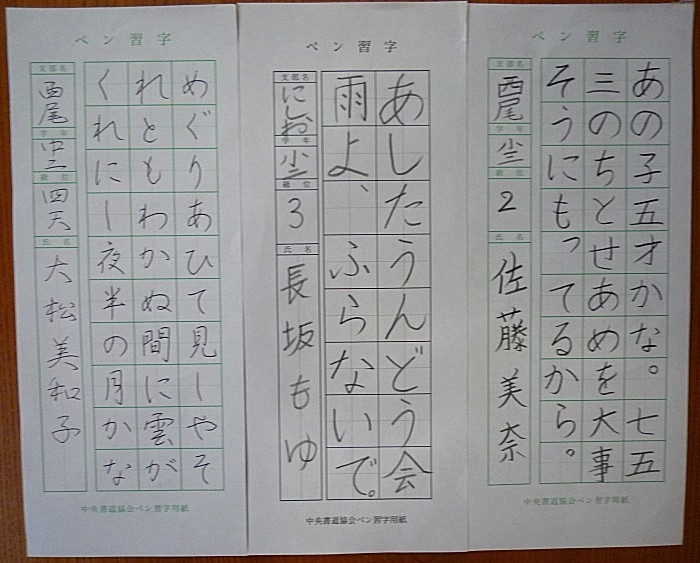 ペン習字
あの子五才かな。七五
三のちとせあめを大事
そうにもってるから。
支部名
西尾
学年
小三
級位
2
氏名
佐藤美奈
中央書道協会ペン習字用紙
ペン習字
あしたうんどう会
雨よ、ふらないで。
支部名
にしお
学年
級位
3
氏名
長坂もゆ
中央書道協会ペン習字用紙
ペン習字
めぐりあひて見しやそ
れともわかぬ間に雲が
くれにし夜半の月かな
支部名
西尾
学年
中二
級位
四天
氏名
大松美和子
中央書道協会ペン習字用紙